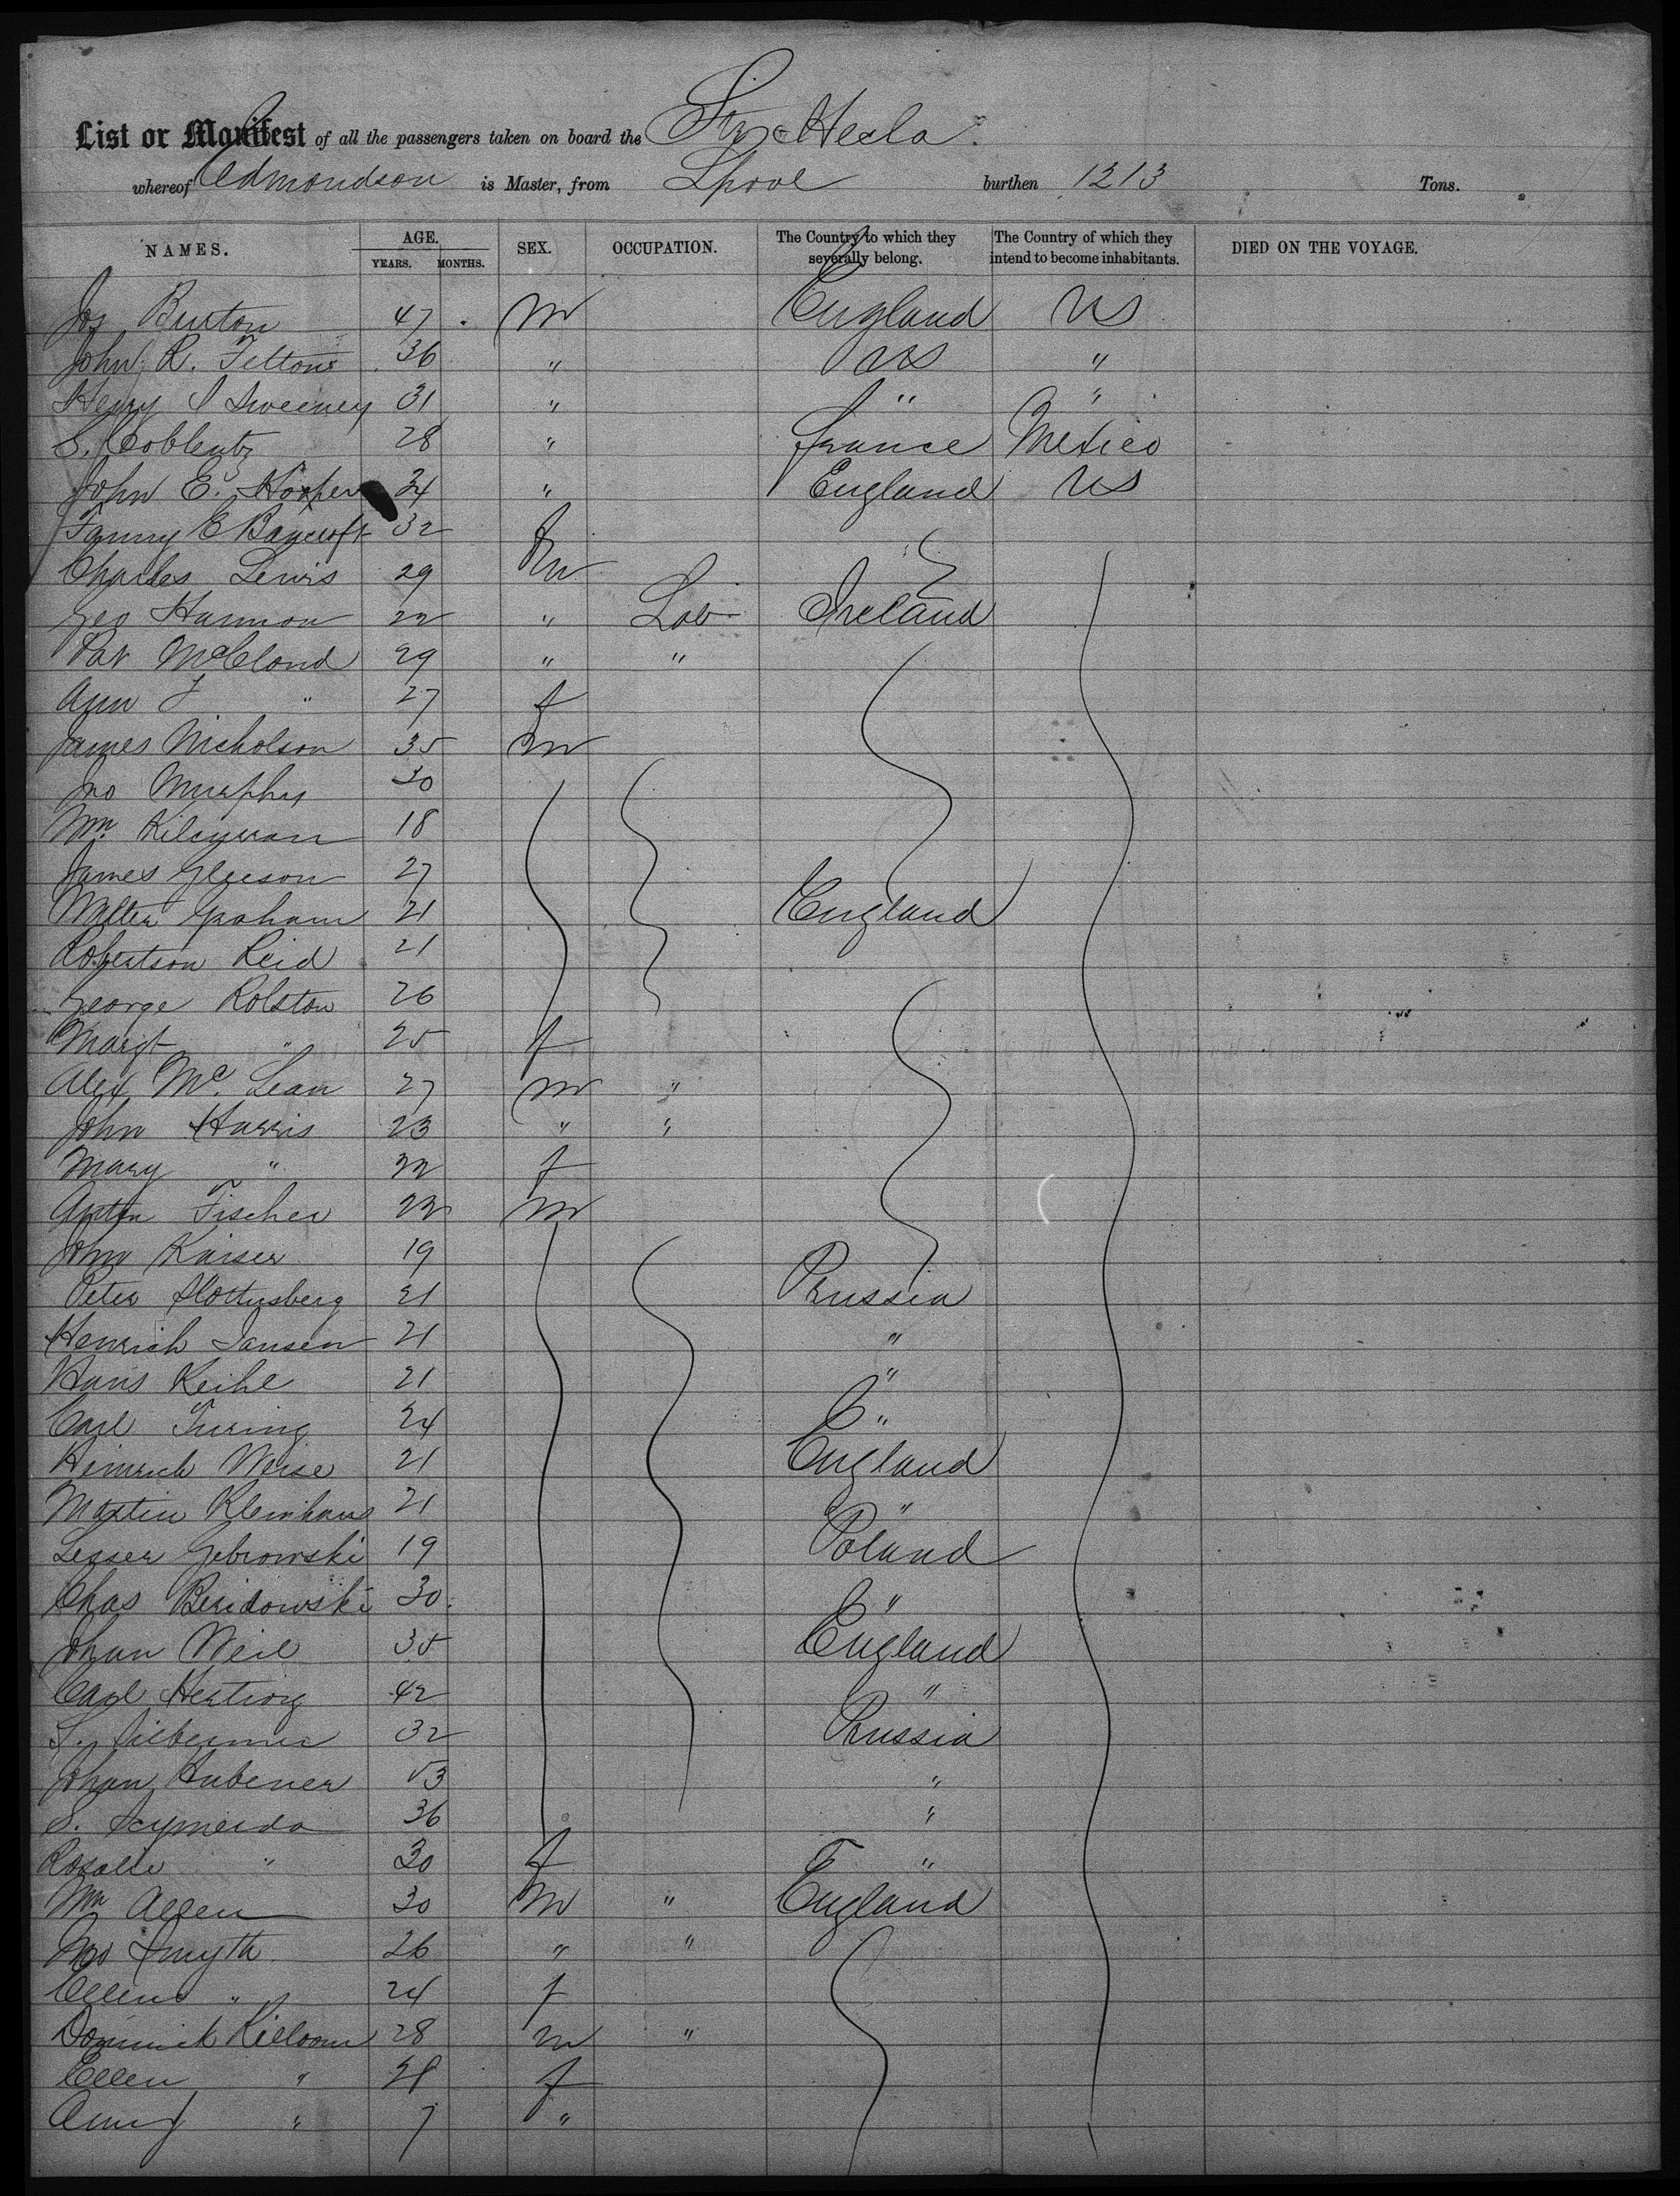 List or Manifest of all the passengers taken on board the Str Hecla.
whereof Edmondson is Master, from Lpool burthen 1213 Tons.
NAMES. AGE. YEARS. MONTHS. SEX. OCCUPATION. The Country to which they severally belong. The Country of which they intend to become inhabitants. DIED ON THE VOYAGE.
Jos Burton 47 m England US
John R. Felton 36 " US "
Henry S Sweeney 31 " " "
S. Coblentz 28 " France Mexico
John E. Hooper 34 " England US
Fanny E Baycroft 32 f
Charles Lewis 29 m
Geo Hannon 22 " Lab Ireland
Pat McCloud 29 " "
Ann F " 27 f
James Nicholson 35 m
Jno Murphy 30
Wm 18
James Gleeson 27
Walter Graham 21 England
Robertson Reid 21
George Rolston 26
Margt " 25 f
Alex Mc. Lean 27 m "
John Harris 23 " "
Mary " 22 f
Anton Fischer 22 m
John Kaiser 19
Peter 21 Prussia
Henrich Jansen 21 "
Hans Keihl 21 "
Carl Turing 24 "
Heinrich Weise 21 England
Martin Kleinhans 21 "
Lesser Gebrowski 19 Poland
Chas Beridowski 30 "
Johan Weil 35 England
Carl Hertwig 42 "
S. 32 Prussia
Johan Hubener 53 "
S. 36 "
Rosalie " 30 f "
Wm Allen 30 m " England
Jno Smyth 26 " "
Ellen " 24 f
Dominick Killoran 28 m "
Ellen " 28 f
Amy " 7 "